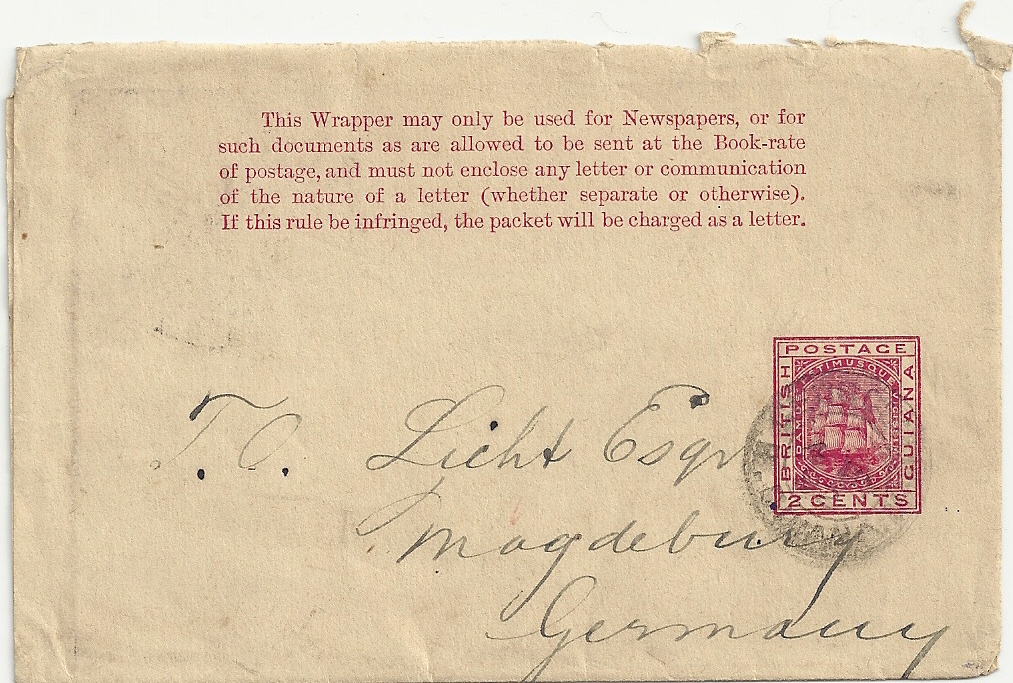 This Wrapper may only be used for Newspapers, or for
such documents as are allowed to be sent at the Book-rate
of postage, and must not enclose any letter or communication
of the nature of a letter (whether separate or otherwise).
If this rule be infringed, the packet will be charged as a letter.
POSTAGE
BRITISH
GUIANA
DAMUS PETIMUSQUE VICISSIM
2 CENTS
T. O. Licht Esqr
Magdeburg
Germany